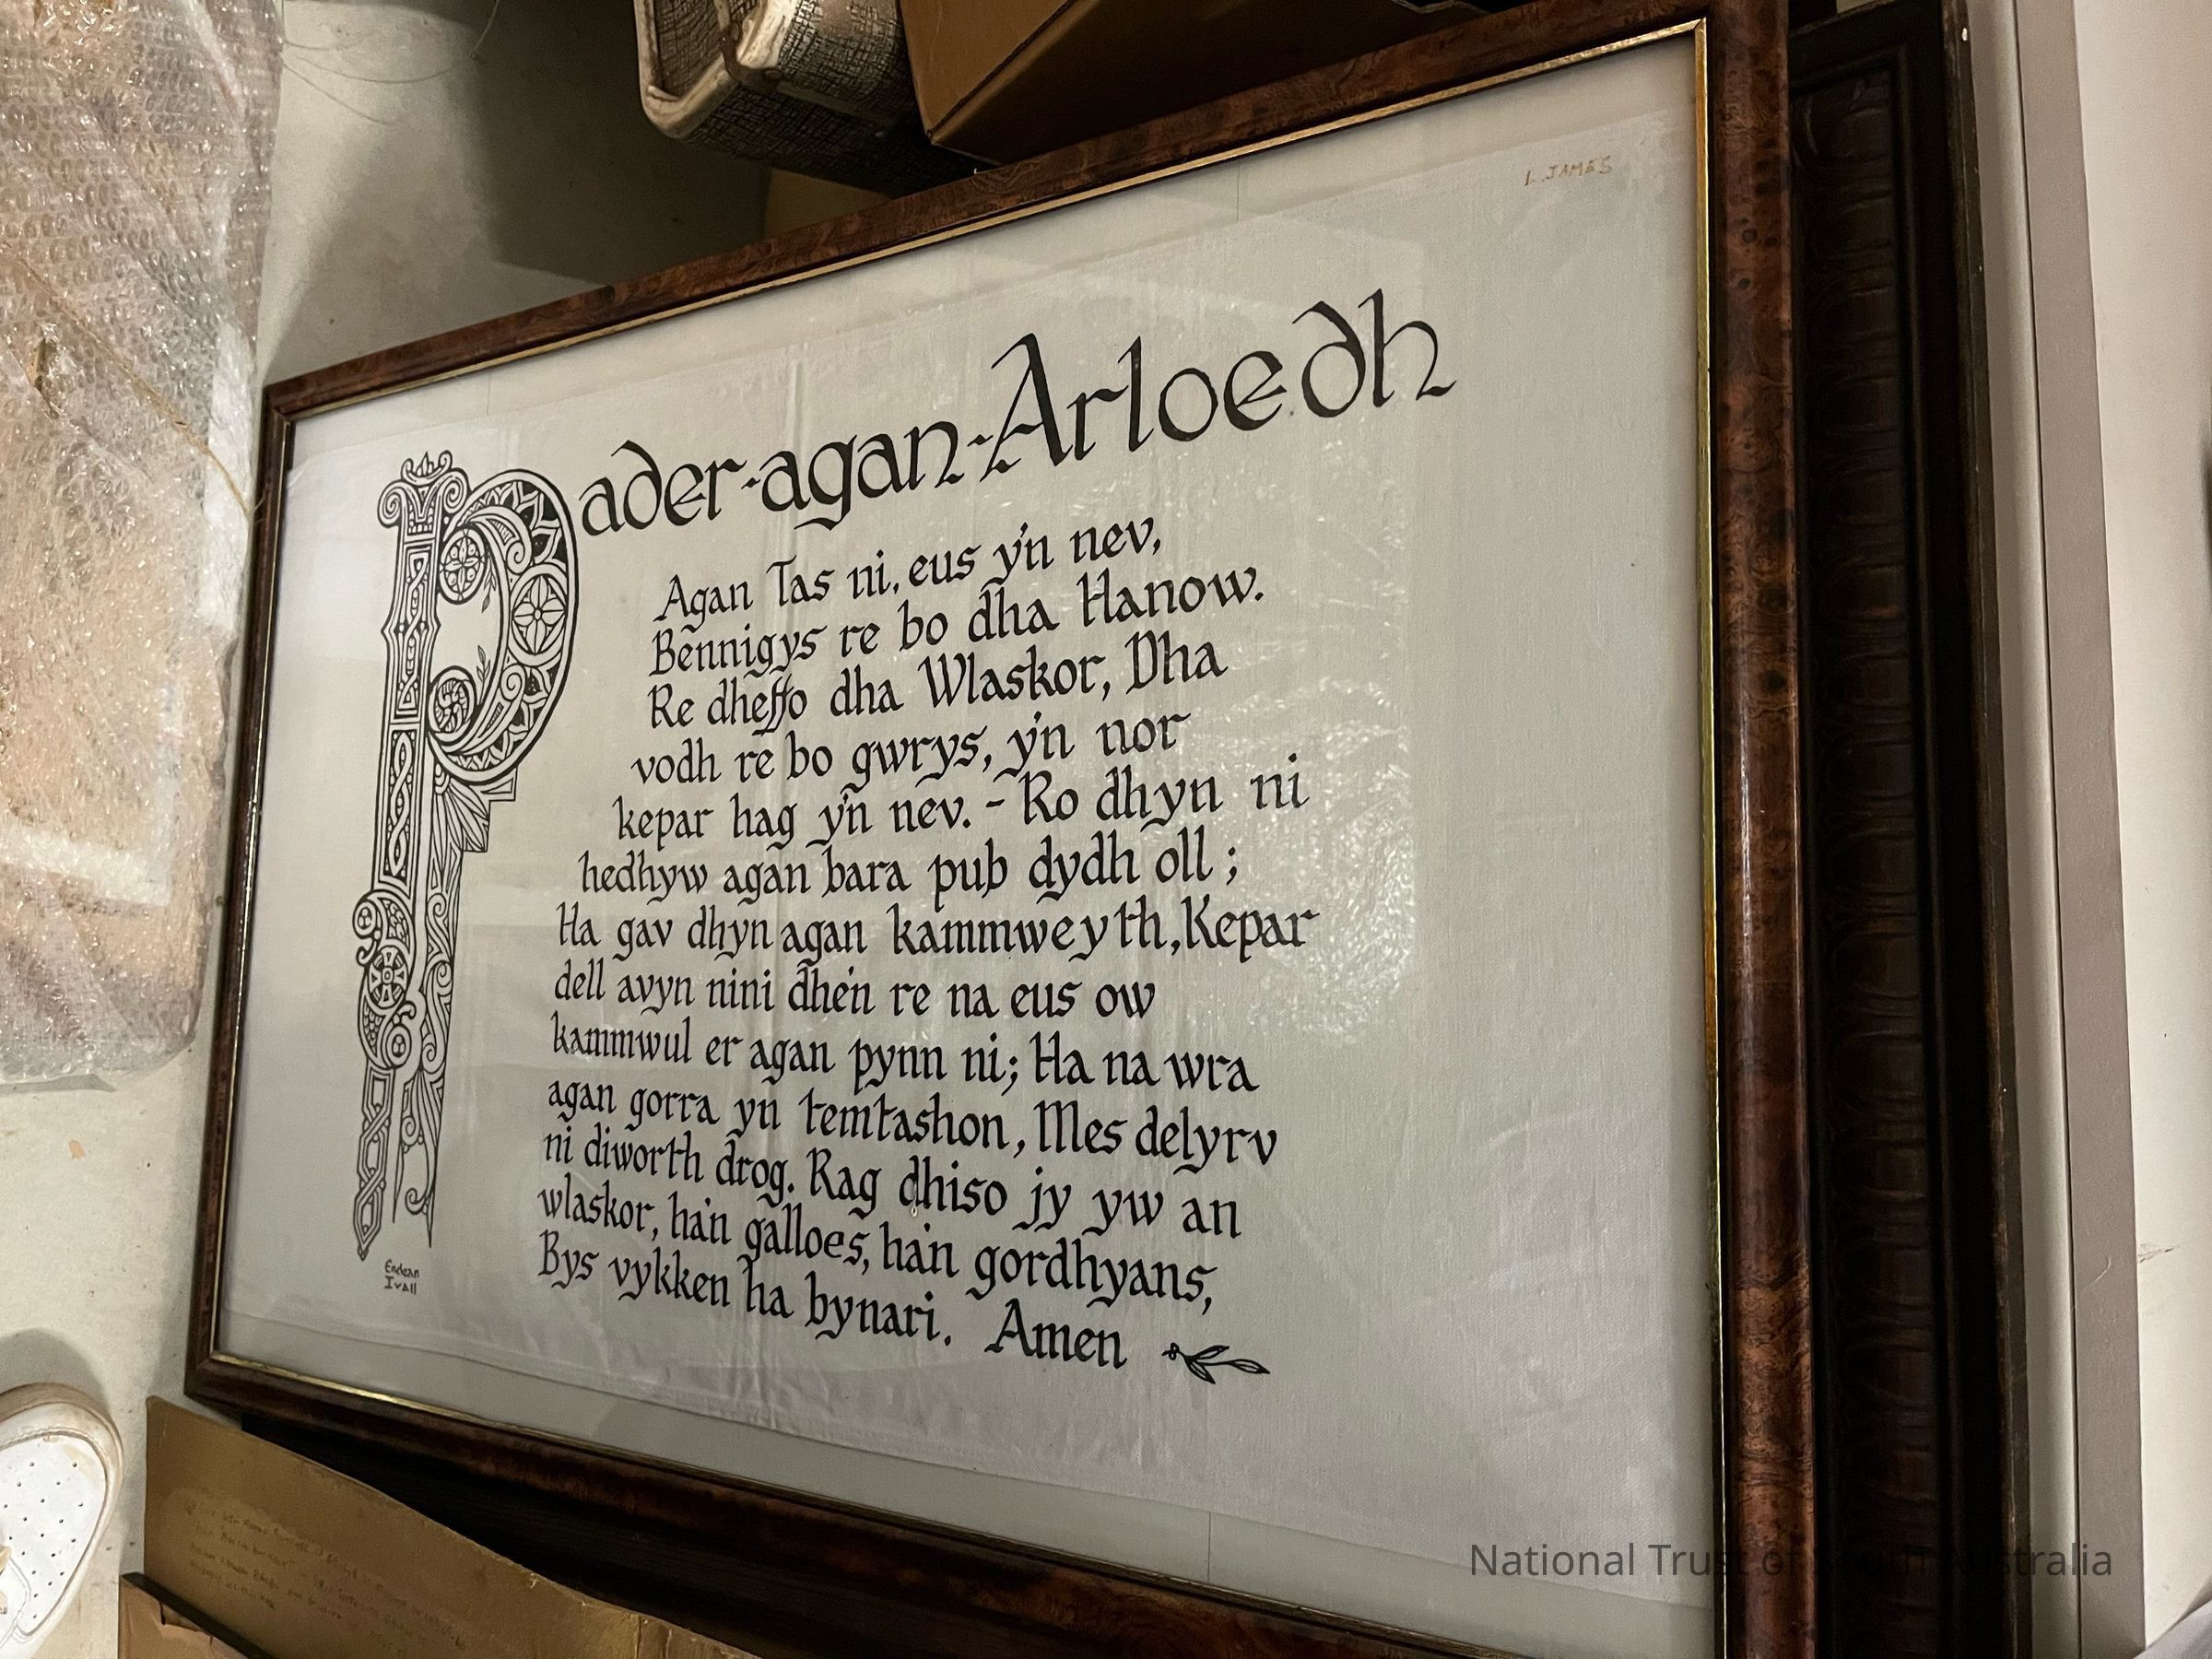 L. JAMES
Pader-agan-Arloedh
Agan Tas ni, eus y'n nev,
Bennigys re bo dha Hanow.
Re dheffo dha Wlaskor, Dha
vodh re bo gwrys, y'n nor
kepar hag y'n nev. - Ro dhyn ni
hedhyw agan bara pub dydh oll ;
Ha gav dhyn agan kammweyth, Kepar
dell avyn nini dhe'n re na eus ow
kammwul er agan pynn ni; Ha na wra
agan gorra yn temtashon, Mes delyrv
ni diworth drog. Rag dhiso jy yw an
wlaskor, ha'n galloes, ha'n gordhyans,
Bys vykken ha bynari. Amen
Endean
Ivall
National Trust of South Australia